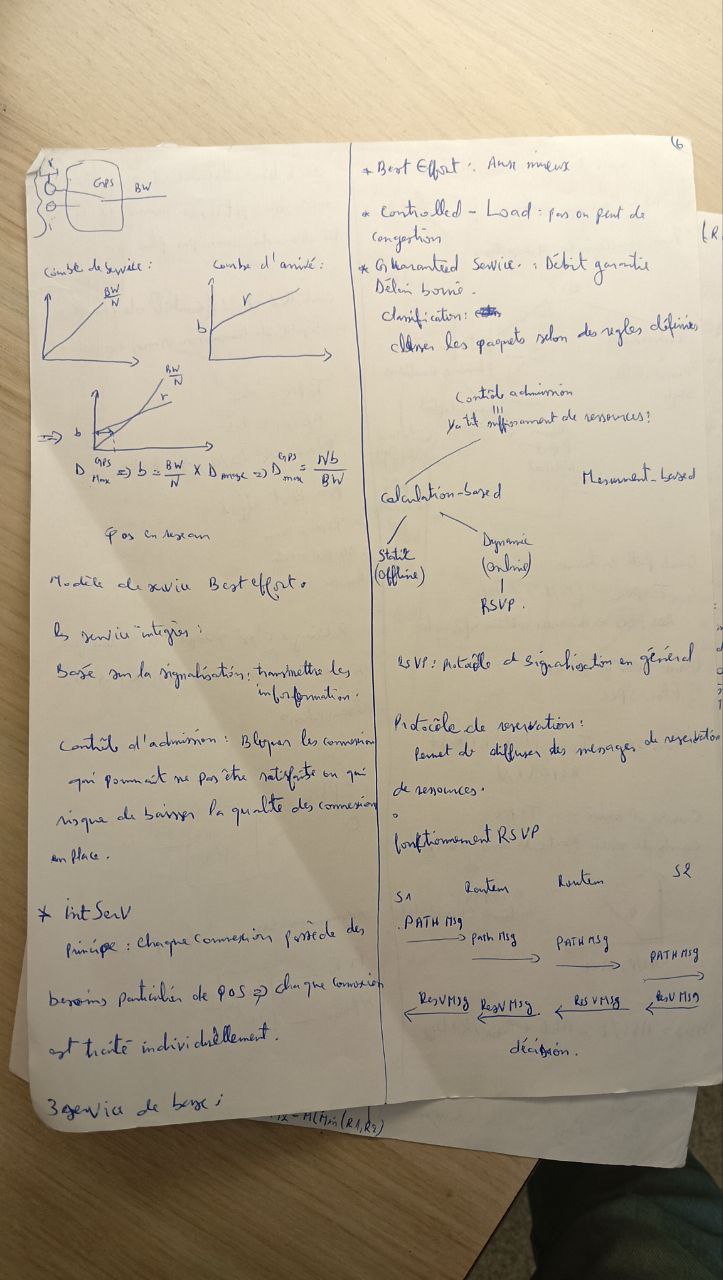 GPS BW
i
Courbe de service :
BW/N
Courbe d'arrivé :
r
b
BW/N
r
=> b
D Max GPS => b = BW/N x D max => D max GPS = Nb/BW
QoS en reseau
Modèle de service Best effort.
Les service integrés :
Basé sur la signalisation : transmettre les
information.
Contrôle d'admission : Bloquer les connexion
qui pourrait ne pas être satisfaite ou qui
risque de baisser la qualité des connexion
en place.
* IntServ
Principe : chaque connexion possède des
besoins particulier de QOS => chaque connexion
est traité individuellement.
3 service de base :
6
* Best Effort : Aux mieux
* Controlled - Load : pas ou peut de
congestion
* Guaranteed Service : Débit garantie
Délai borné.
classification :
classer les paquets selon des regles définies
Contrôle admission
Ya til suffisament de ressources ?
Calculation-based
Mesurment-based
Static
(offline)
Dynamic
(online)
RSVP.
RSVP : Protocôle d signalisation en général
Protocôle de reservation :
Permet de diffuser des messages de reservation
de ressources.
fonctionnement RSVP
S1 Routeur Routeur S2
PATH Msg path Msg PATH Msg PATH Msg
ResV Msg ResV Msg ResV Msg ResV Msg
décision.
(R1,R2)